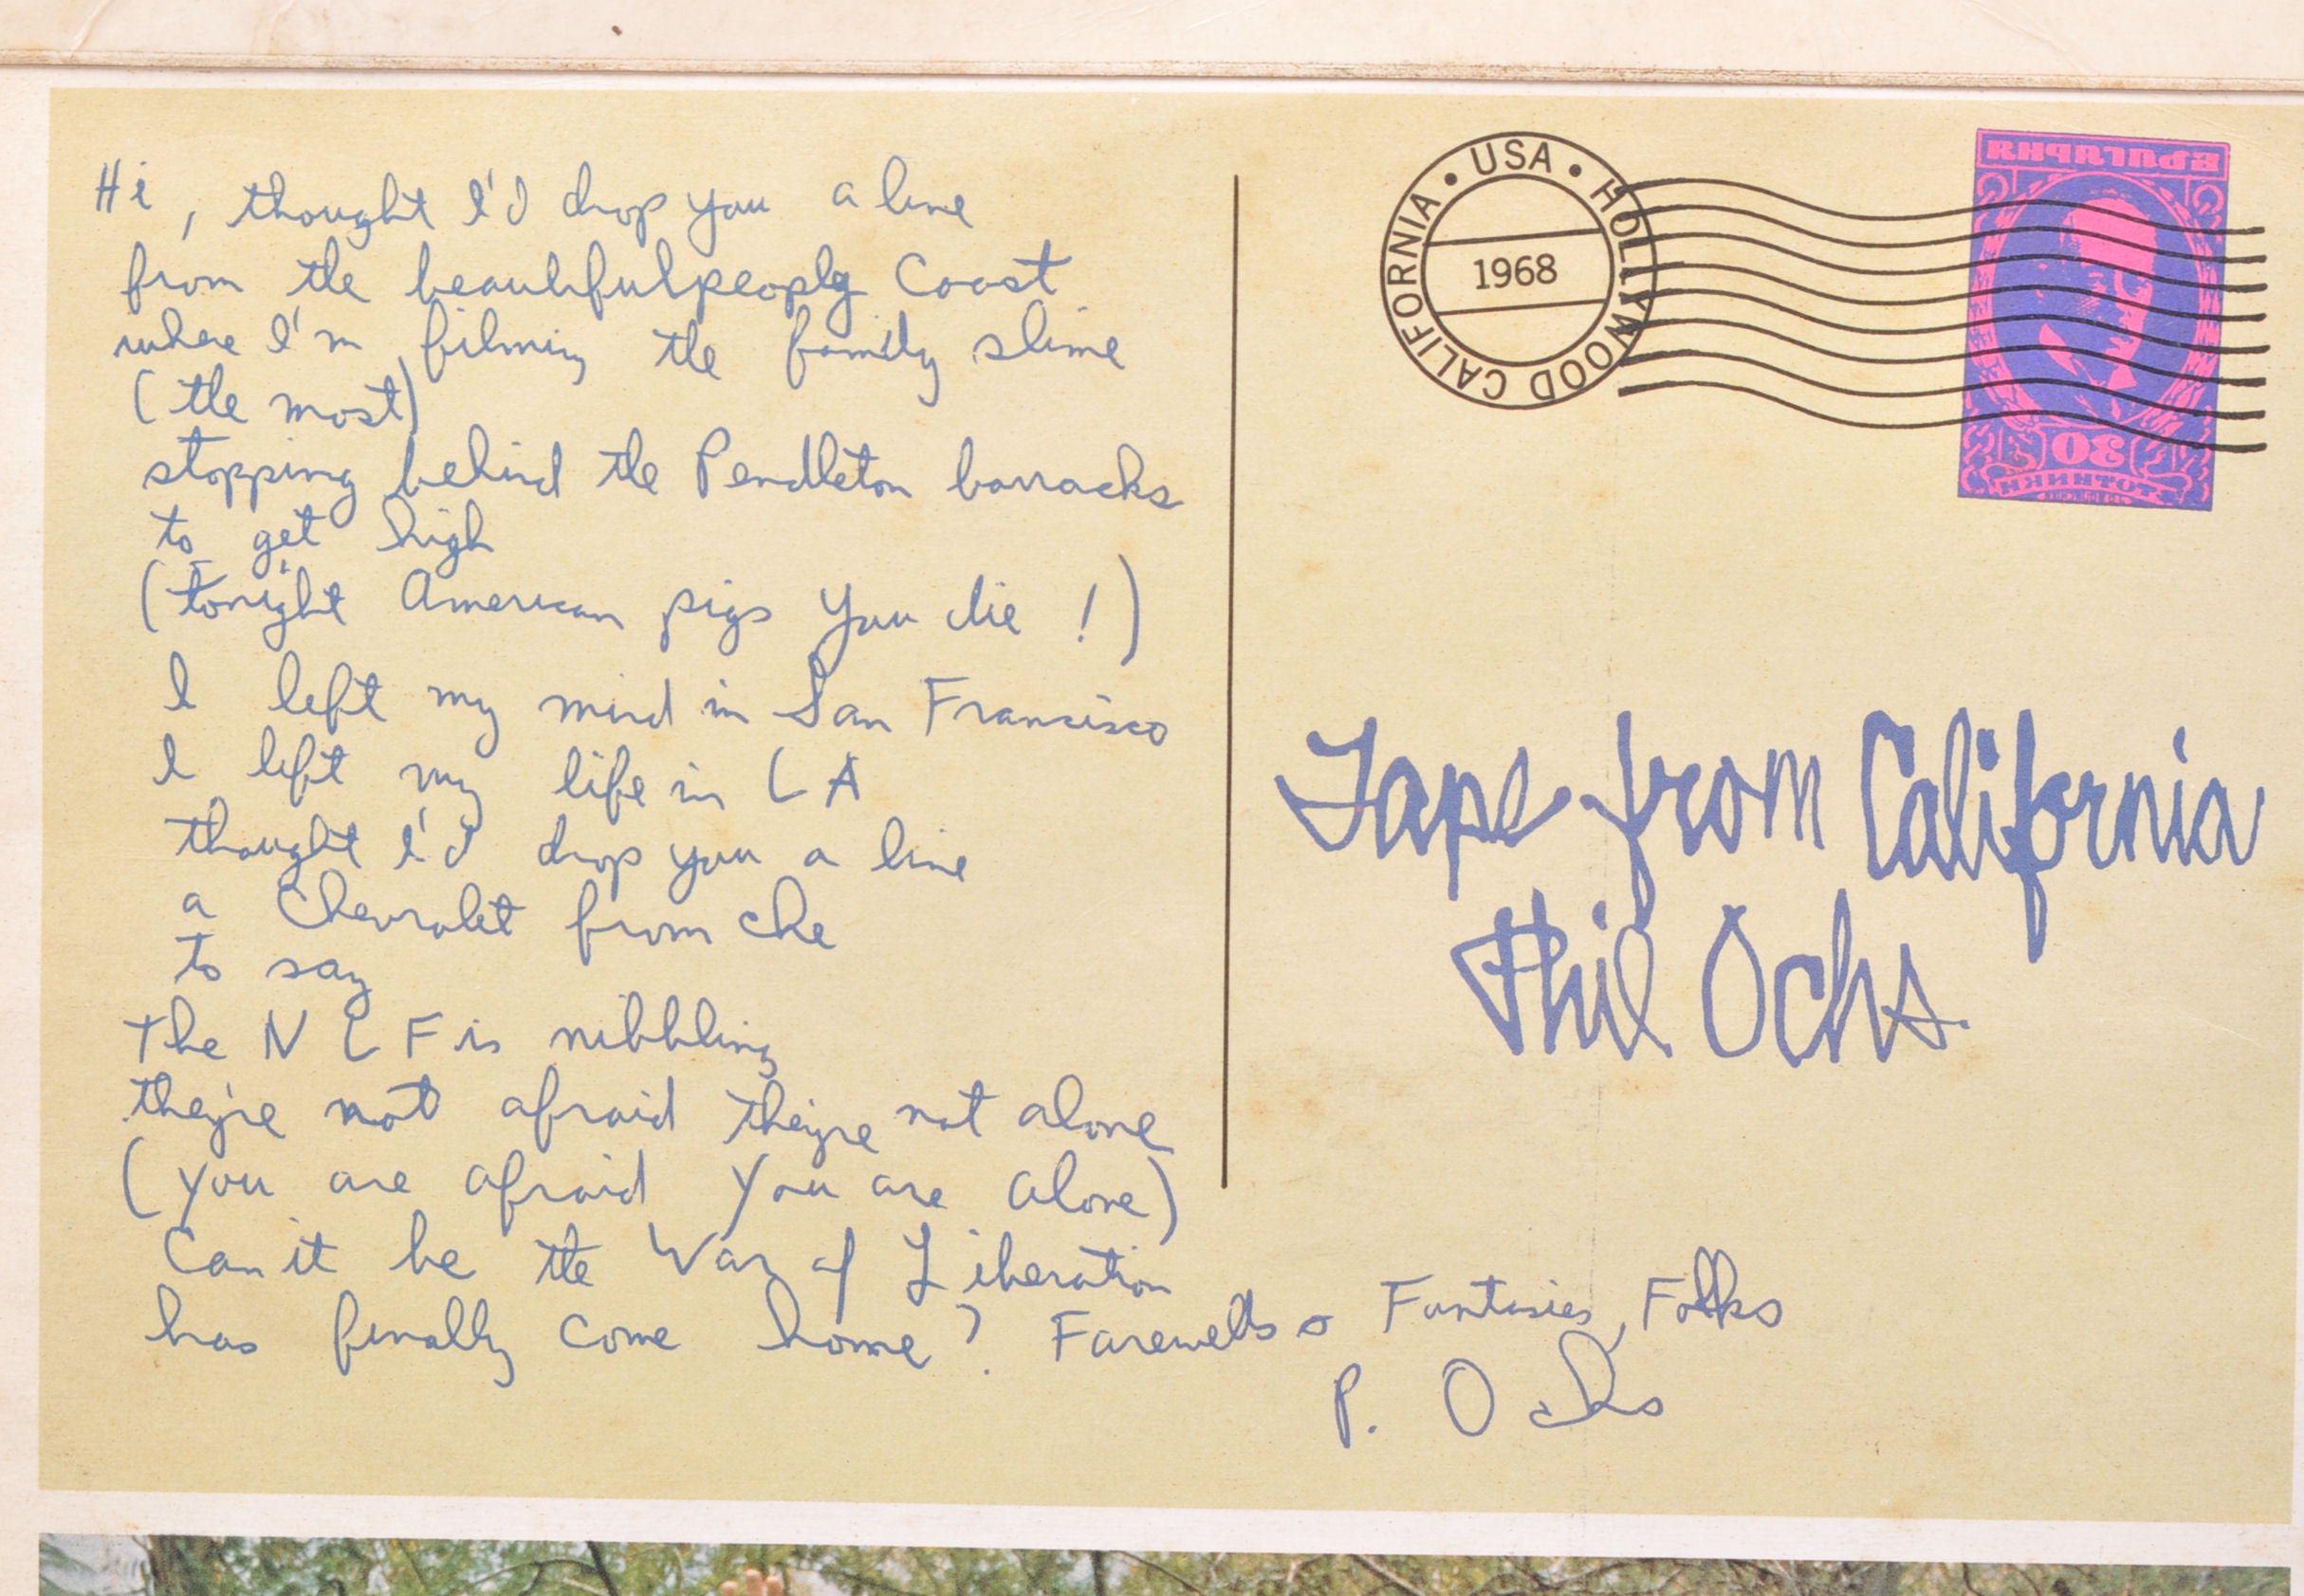 Hi, thought I'd drop you a line
from the beautifulpeople Coast
where I'm filming the family slime
(the most)
stopping behind the Pendleton barracks
to get high
(tonight American pigs you die!)
I left my mind in San Francisco
I left my life in LA
thought I'd drop you a line
a Chevrolet from che
to say
The NLF is nibbling
they're not afraid they're not alone
(you are afraid you are alone)
Can it be the War of Liberation
has finally come home? Farewells & Fantasies, Folks
P. Ochs
USA • HOLLYWOOD CALIFORNIA •
1968
30
Tape from California
Phil Ochs